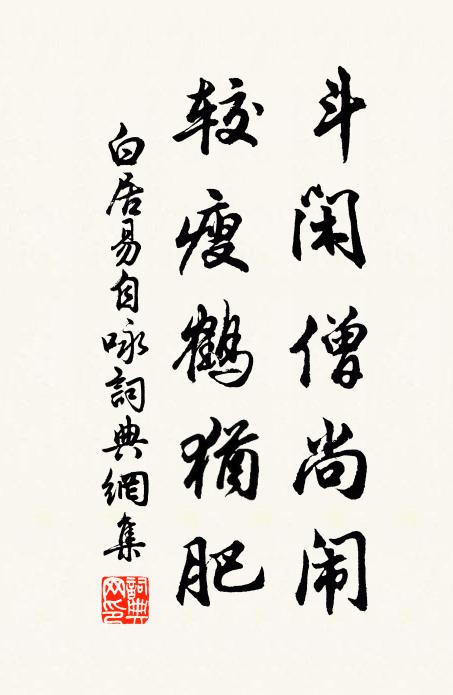 斗闲僧尚闹
较瘦鹤犹肥
白居易自咏詞典網集
詞典网印